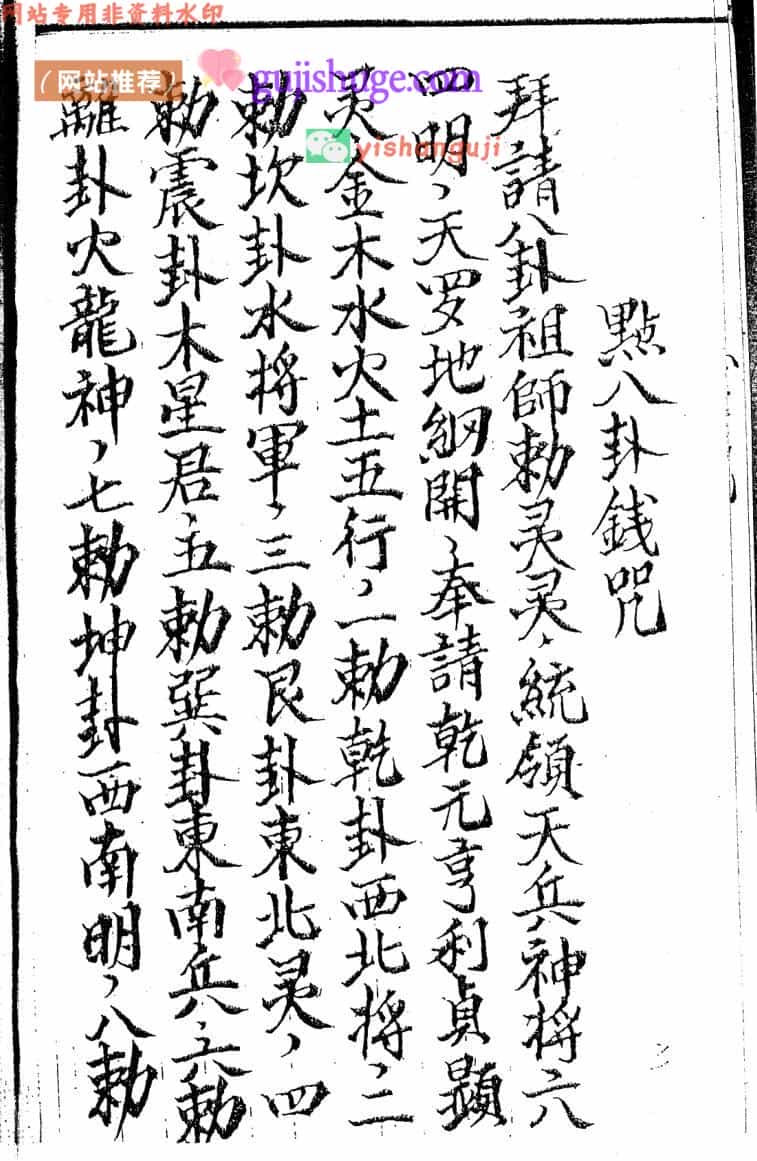 网站专用非资料水印
（网站推荐）
gujishuge.com
yishanguji
點八卦錢咒
拜請八卦祖師勅灵灵、統領天兵神将六
四明、天罗地網開、奉請乾元亨利貞顕
灵、金木水火土五行、一勅乾卦西北将、二
勅坎卦水将軍、三勅艮卦東北灵、四
勅震卦木星君、五勅巽卦東南兵、六勅
離卦火龍神、七勅坤卦西南明、八勅